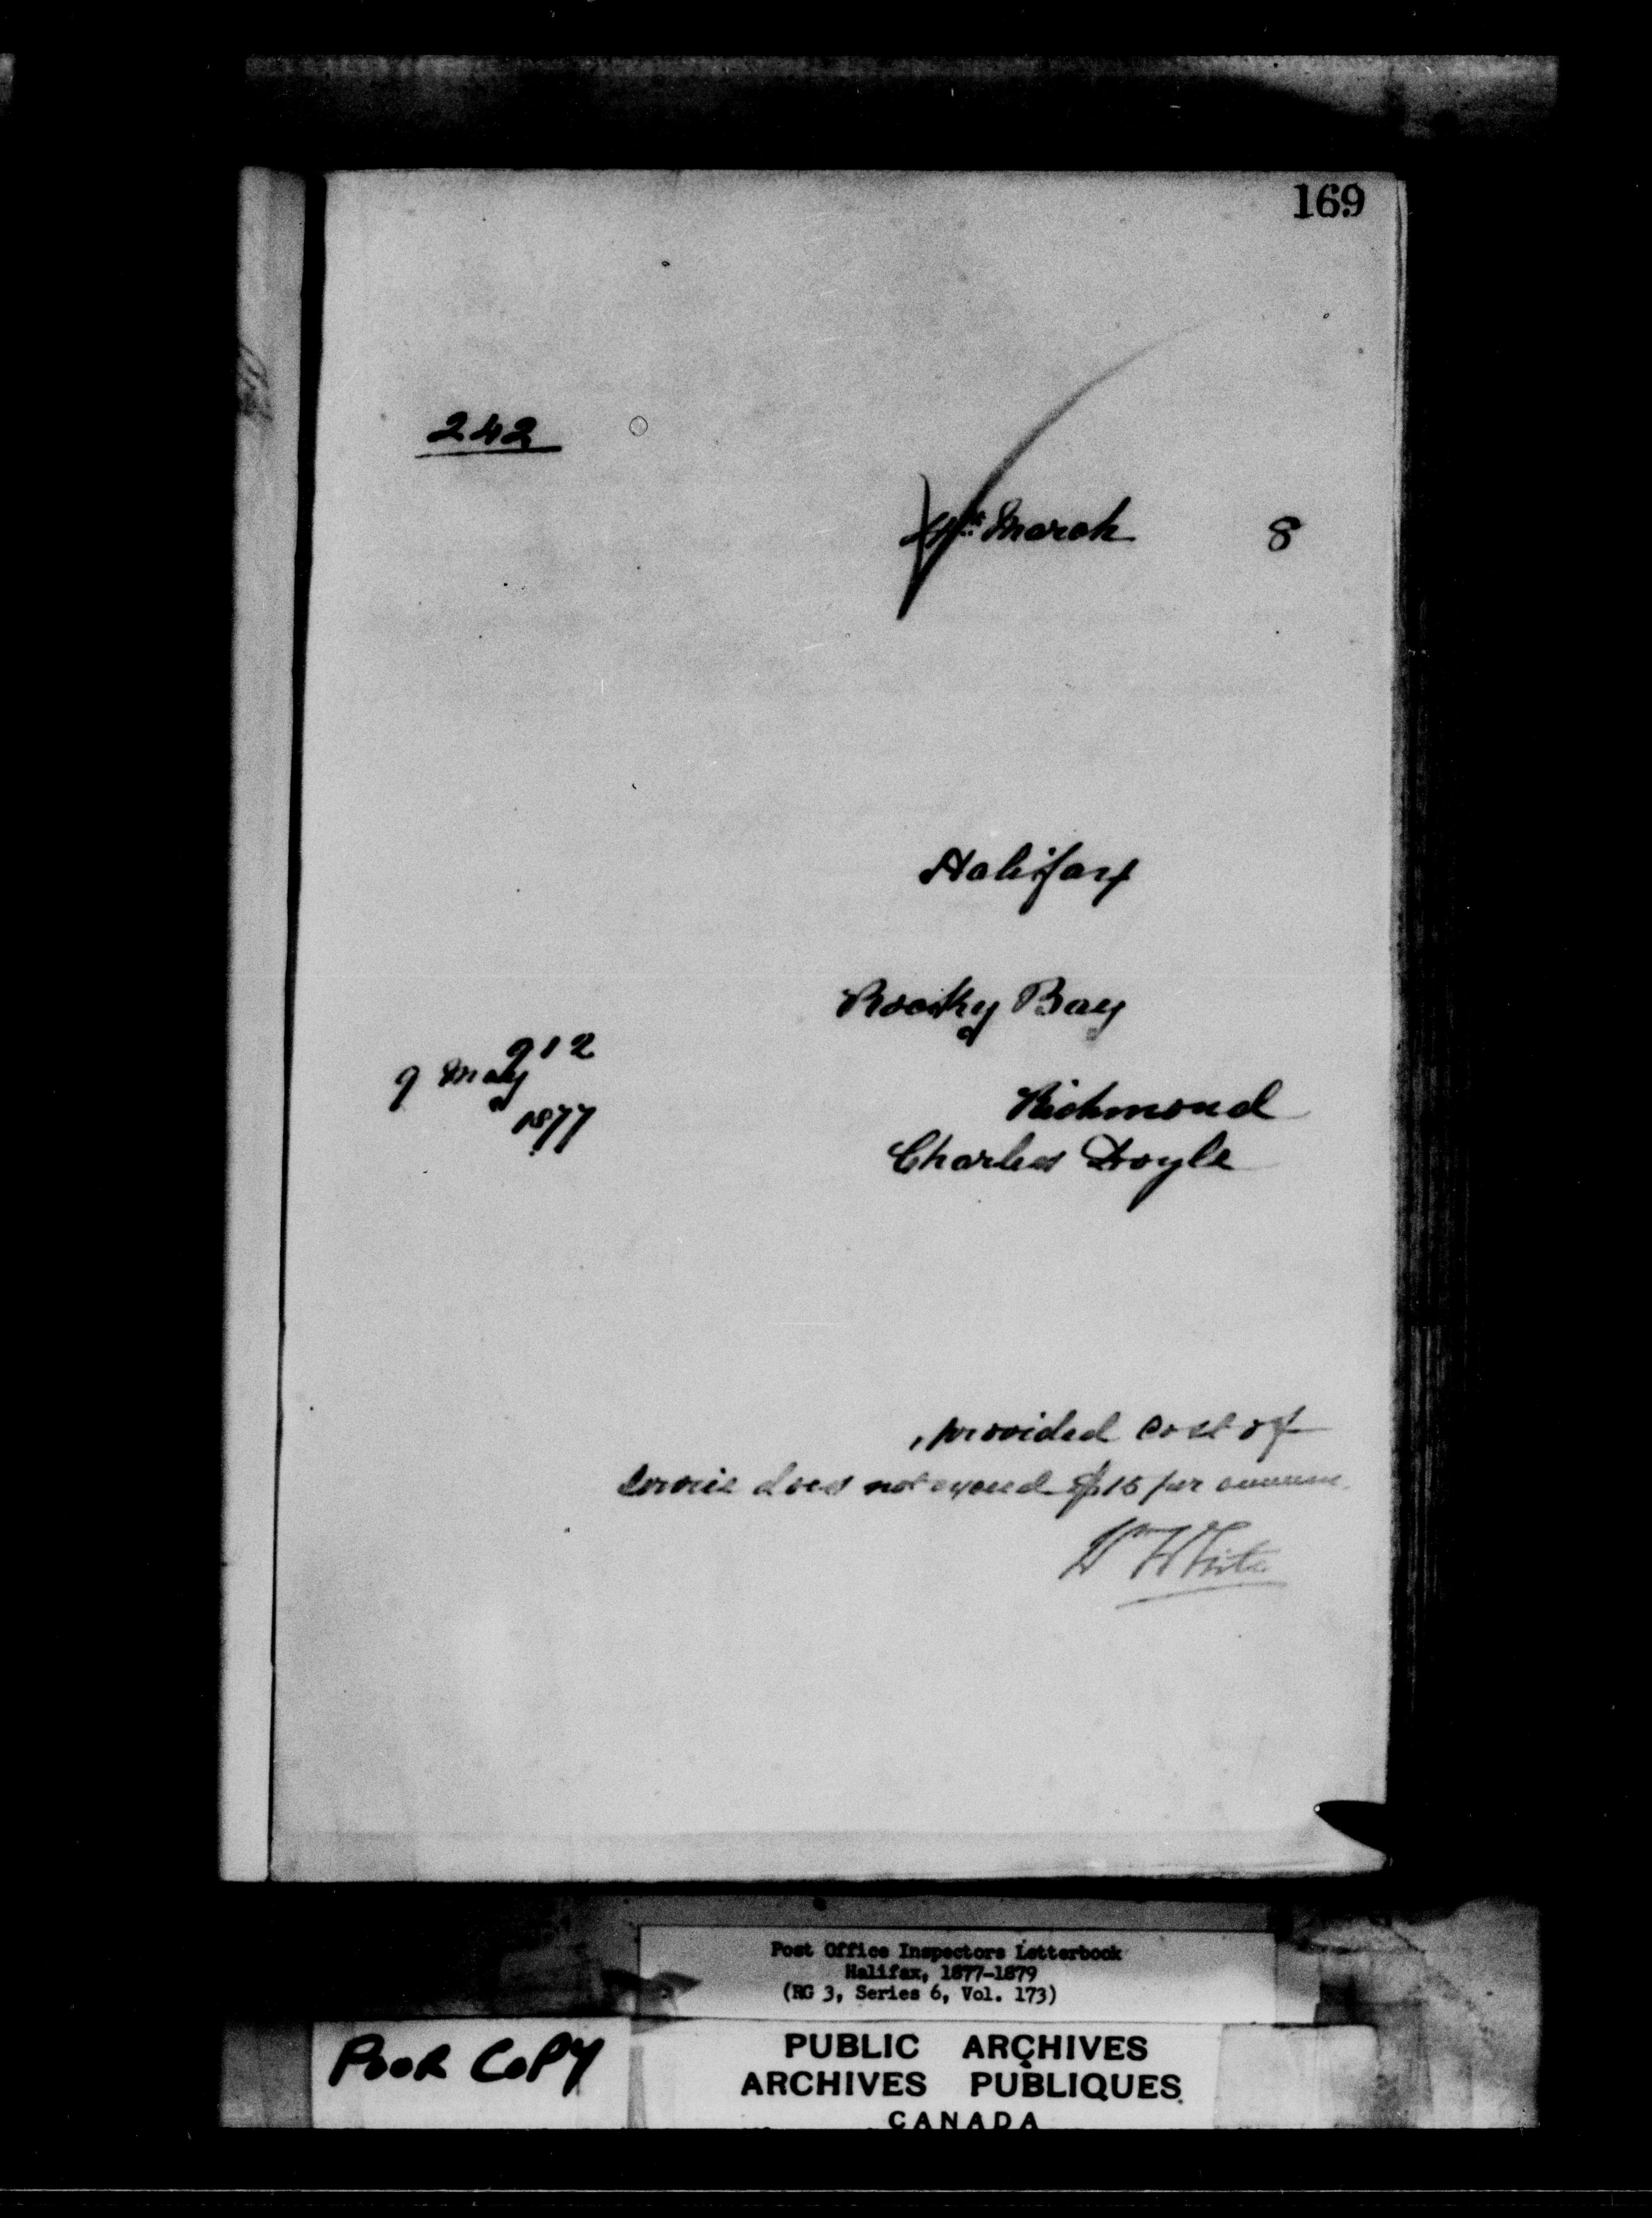 169
242
4th March 8
Halifax
Rocky Bay
912
9 May
1877
Richmond
Charles Doyle
, provided cost of
service does not exceed $15 per annum.
White
Post Office Inspectors Letterbook
Halifax, 1877-1879
(RG 3, Series 6, Vol. 173)
POOR COPY
PUBLIC ARCHIVES
ARCHIVES PUBLIQUES
CANADA